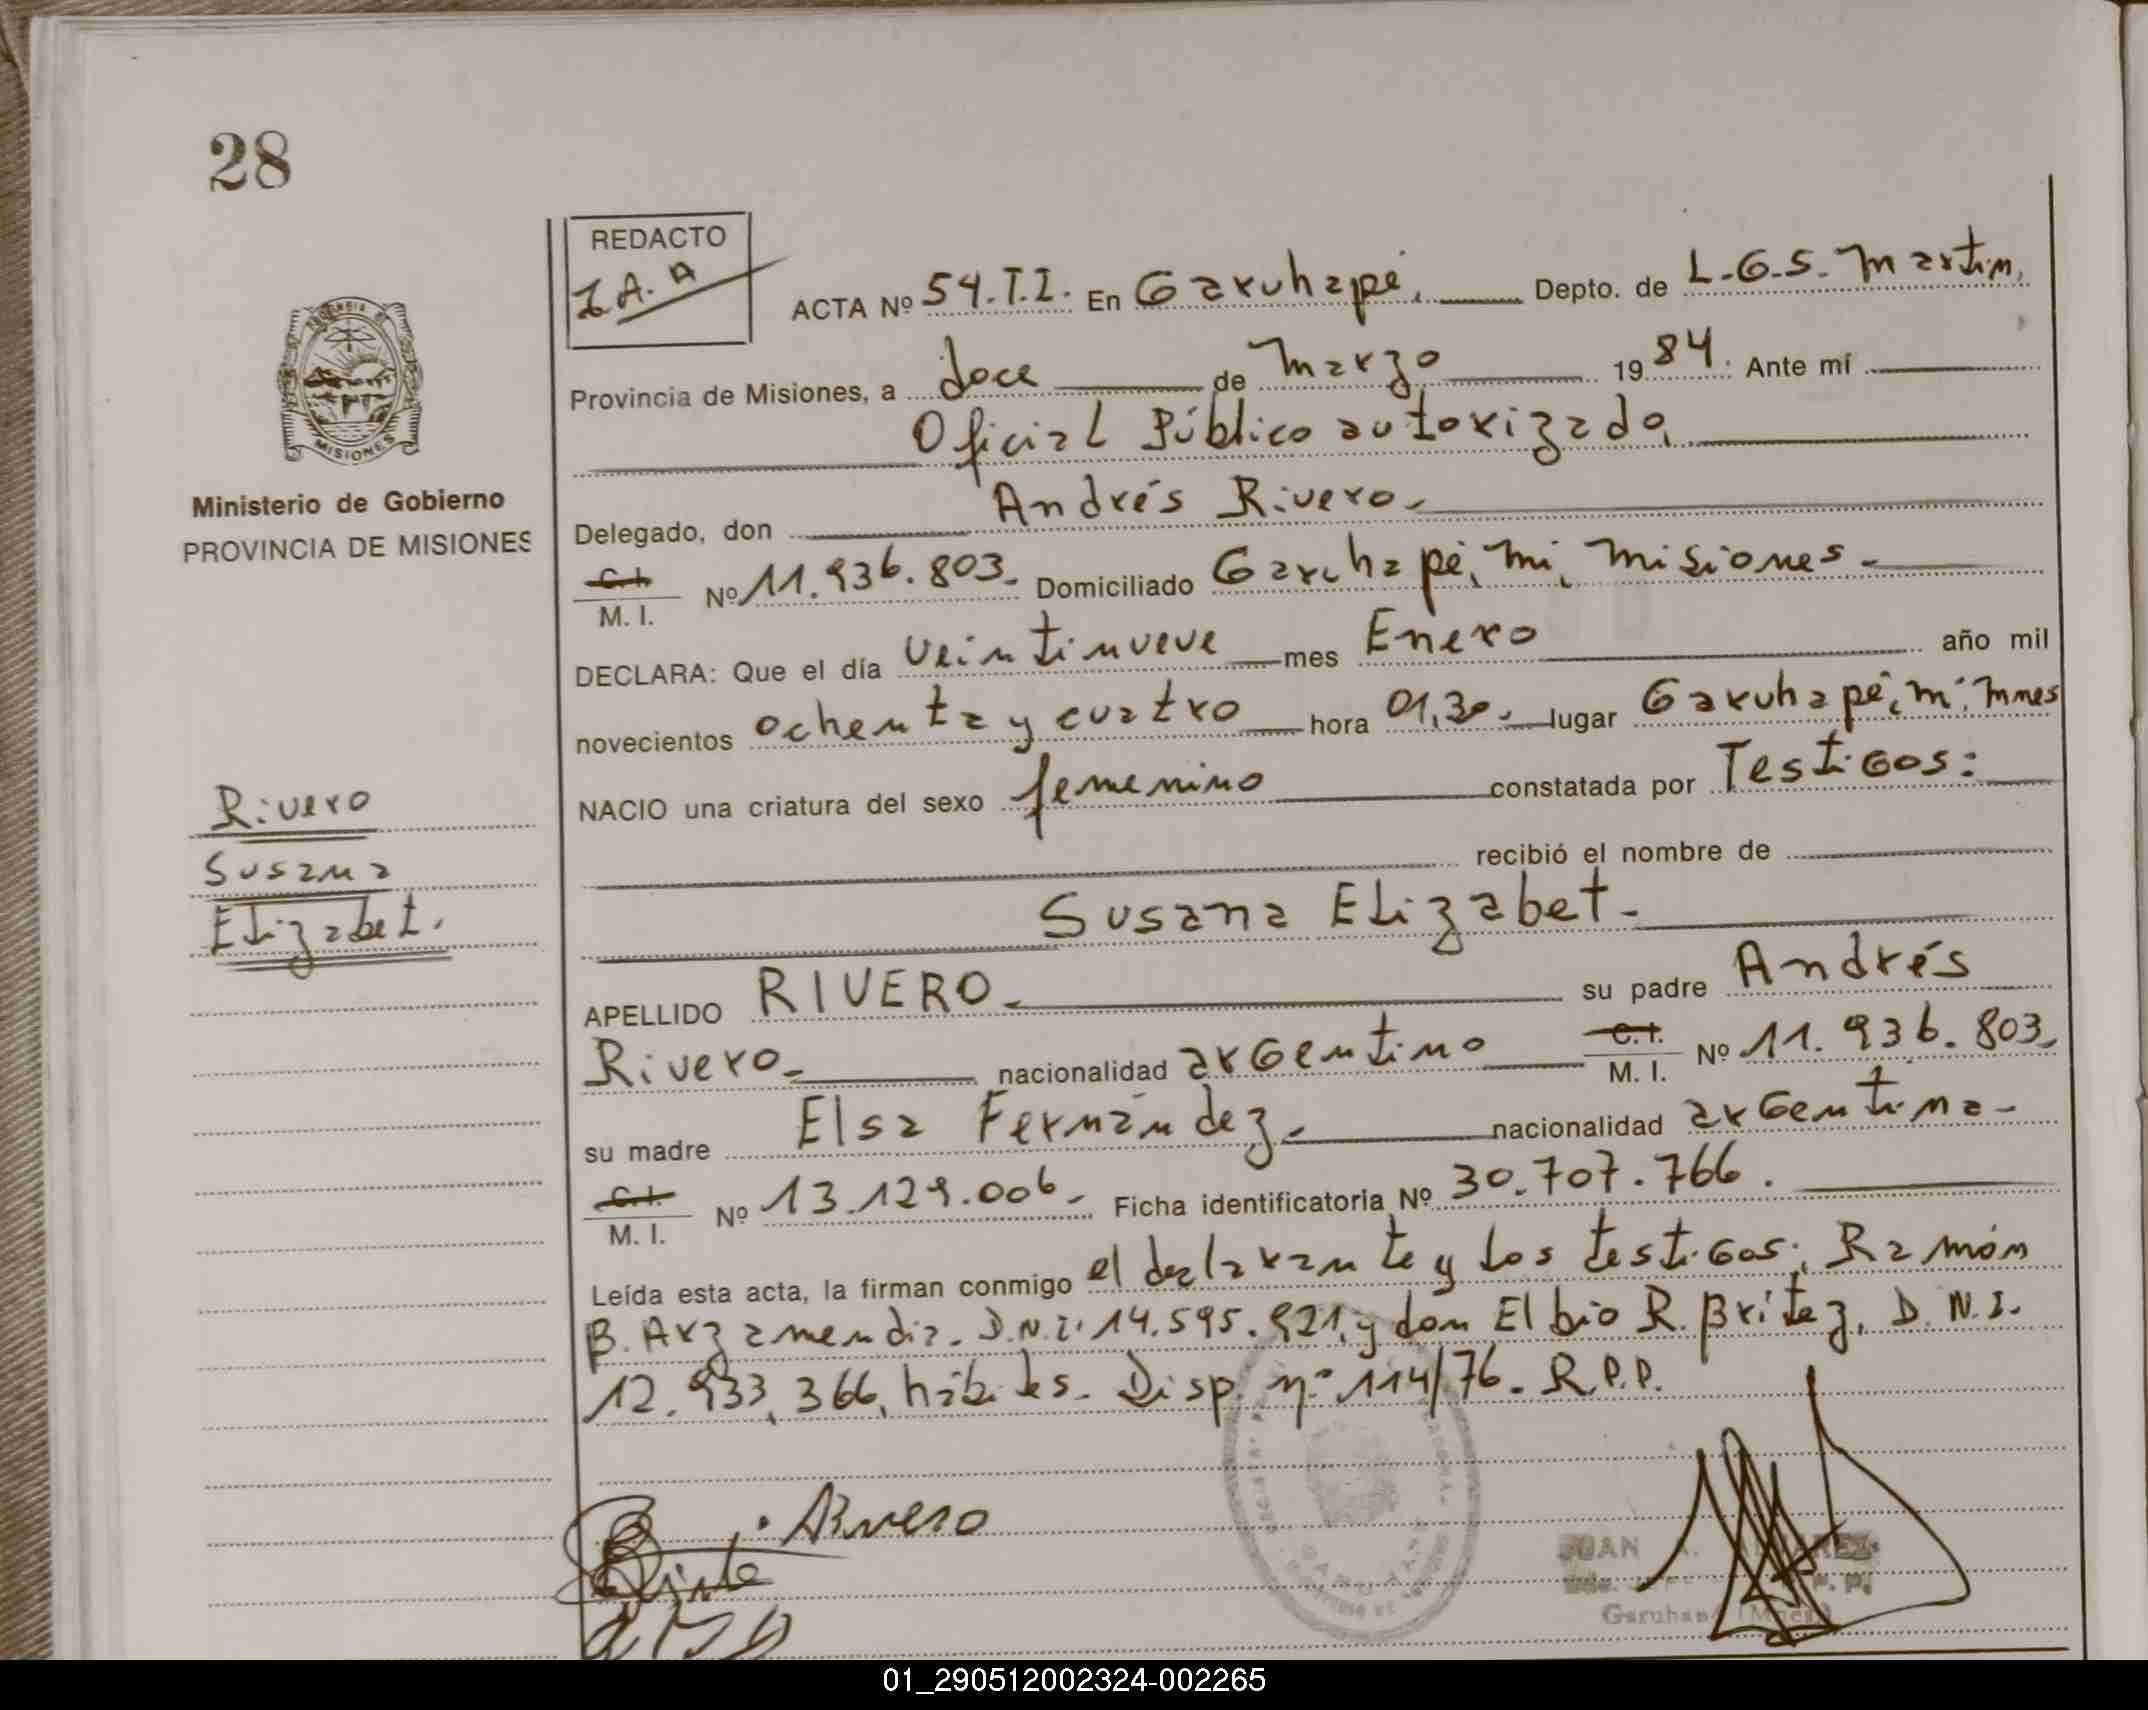 28
REDACTO
J.A.A
ACTA Nº 54.T.I. En Garuhapé, Depto. de L.G.S. Martín,
Provincia de Misiones, a doce de Marzo 1984. Ante mí
Oficial Público autorizado,
Delegado, don Andrés Rivero.
C. I.
M. I. Nº 11.936.803. Domiciliado Garuhapé, Mi, Misiones.
DECLARA: Que el día veintinueve mes Enero año mil
novecientos ochenta y cuatro hora 01,30. lugar Garuhapé, Mi. Mnes
NACIO una criatura del sexo femenino constatada por Testigos:
recibió el nombre de
Susana Elizabet.
APELLIDO RIVERO. su padre Andrés
Rivero. nacionalidad argentino C. I. M. I. Nº 11.936.803.
su madre Elsa Fernández. nacionalidad argentina.
C. I.
M. I. Nº 13.129.006. Ficha identificatoria Nº 30.707.766.
Leída esta acta, la firman conmigo el declarante y los testigos: Ramón
B. Arzamendia. D.N.I. 14.595.921, y don Elbio R. Britez, D.N.I.
12.933.366, hábiles. Disp. nº 114/76. R.P.P.
PROVINCIA DE
MISIONES
Ministerio de Gobierno
PROVINCIA DE MISIONES
Rivero
Susana
Elizabet.
Rivero
JUAN A. ALVAREZ
Garuhapé (Mnes)
01_290512002324-002265